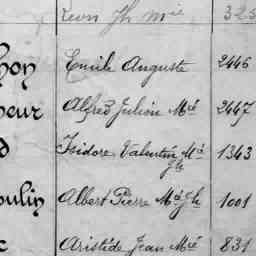 Léon Jh Mie 325
hon Emile Auguste 2446
heur Alfred Julien Mie 2447
d Isidore Valentin Mie 1343
Jh
oulin Albert Pierre Mie Jh 1001
c Aristide Jean Mie 831